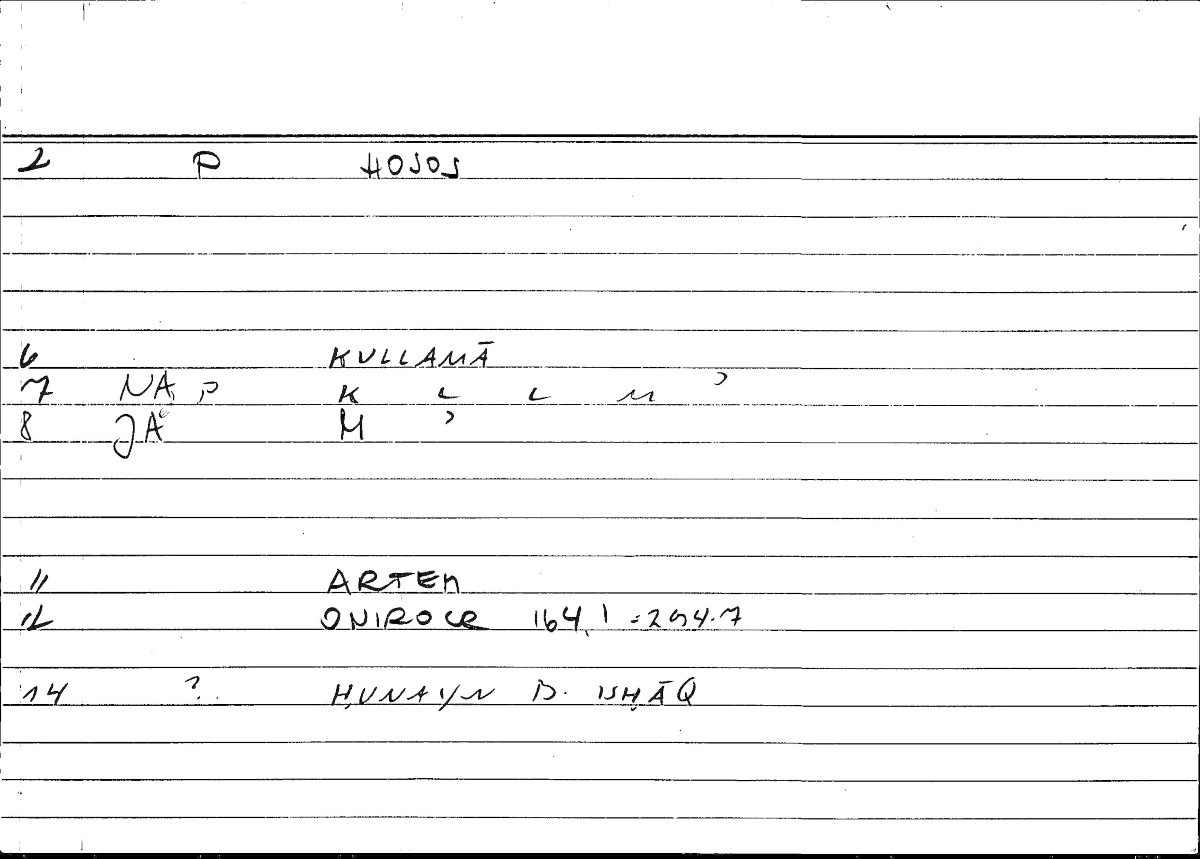 2 P HOSOS
6 KULLAMĀ
7 NA P K L L M ʾ
8 JA M ʾ
11 ARTEM
12 ONIROCR 164,1 = 294.7
14 ? ḤUNAYN B. ISḤĀQ